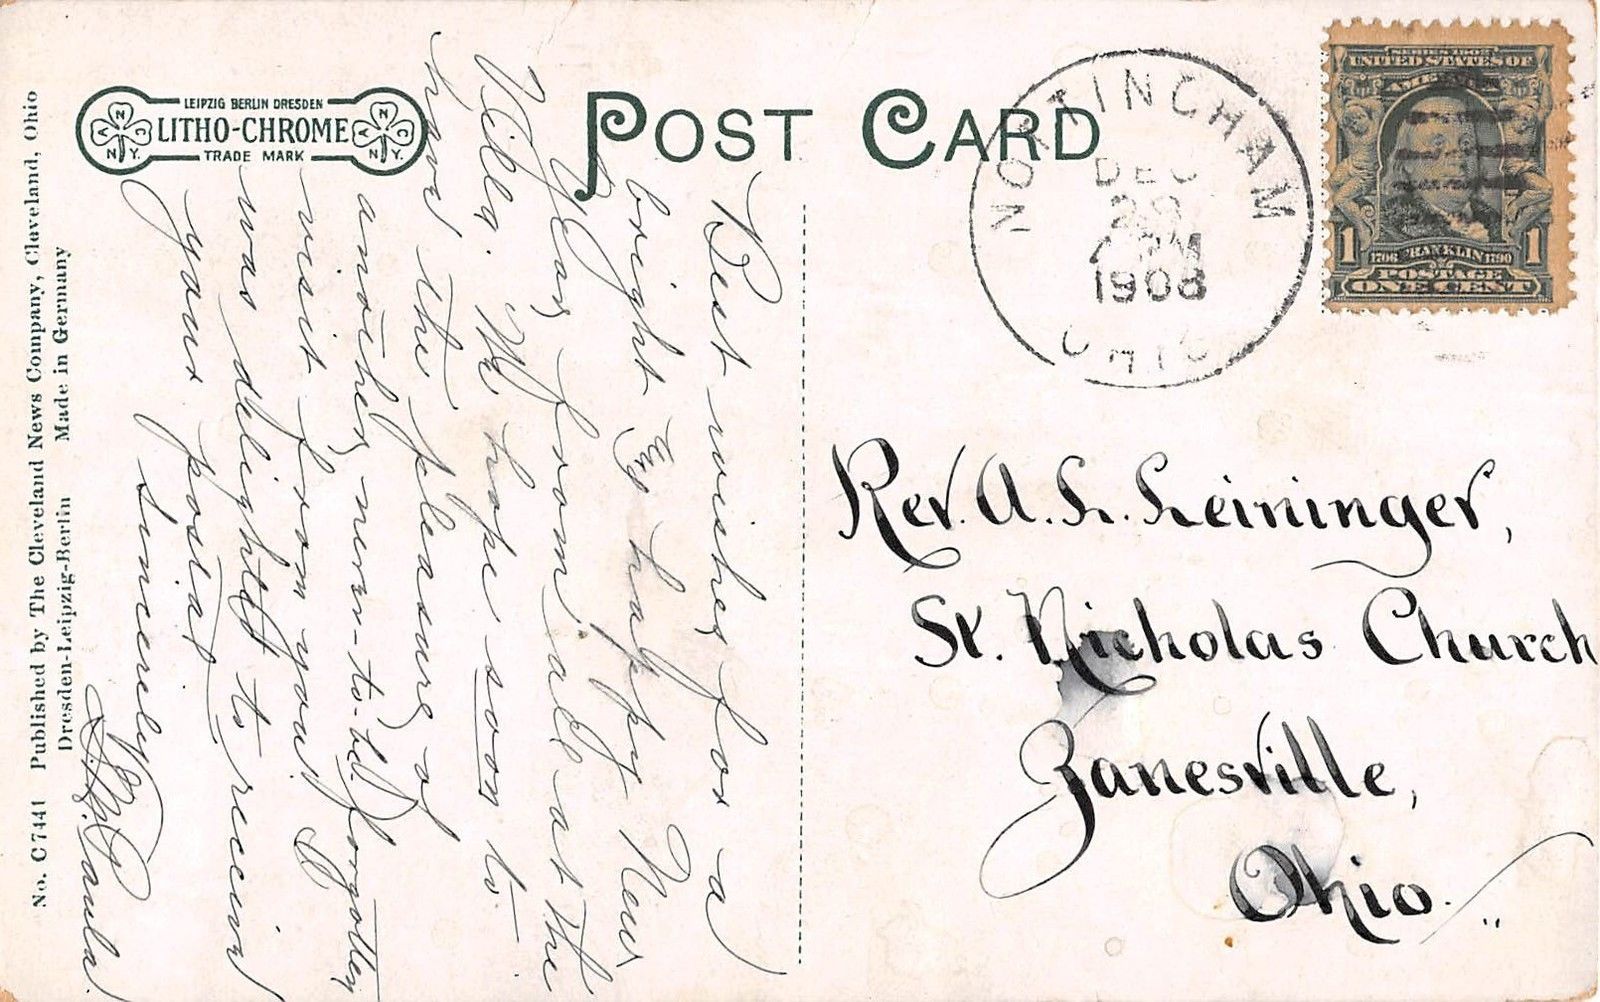 No. C 7441 Published by The Cleveland News Company, Cleveland, Ohio
Dresden-Leipzig-Berlin Made in Germany
LEIPZIG BERLIN DRESDEN
LITHO-CHROME
TRADE MARK
N
A C
N.Y.
N
A C
N.Y.
POST CARD
NOTTINGHAM
DEC
29
AM
1908
OHIO
SERIES 1902
UNITED STATES OF
AMERICA
1 1706 FRANKLIN 1790 1
POSTAGE
ONE CENT
Best wishes for a
bright & happy New
Year, from all at the
Villa. We hope soon to
have the pleasure of
another, never-to-be forgotten
visit from you. I
was delighted to receive
your postal.
Sincerely,
Paula.
Rev. A. L. Leininger,
St. Nicholas Church
Zanesville,
Ohio.